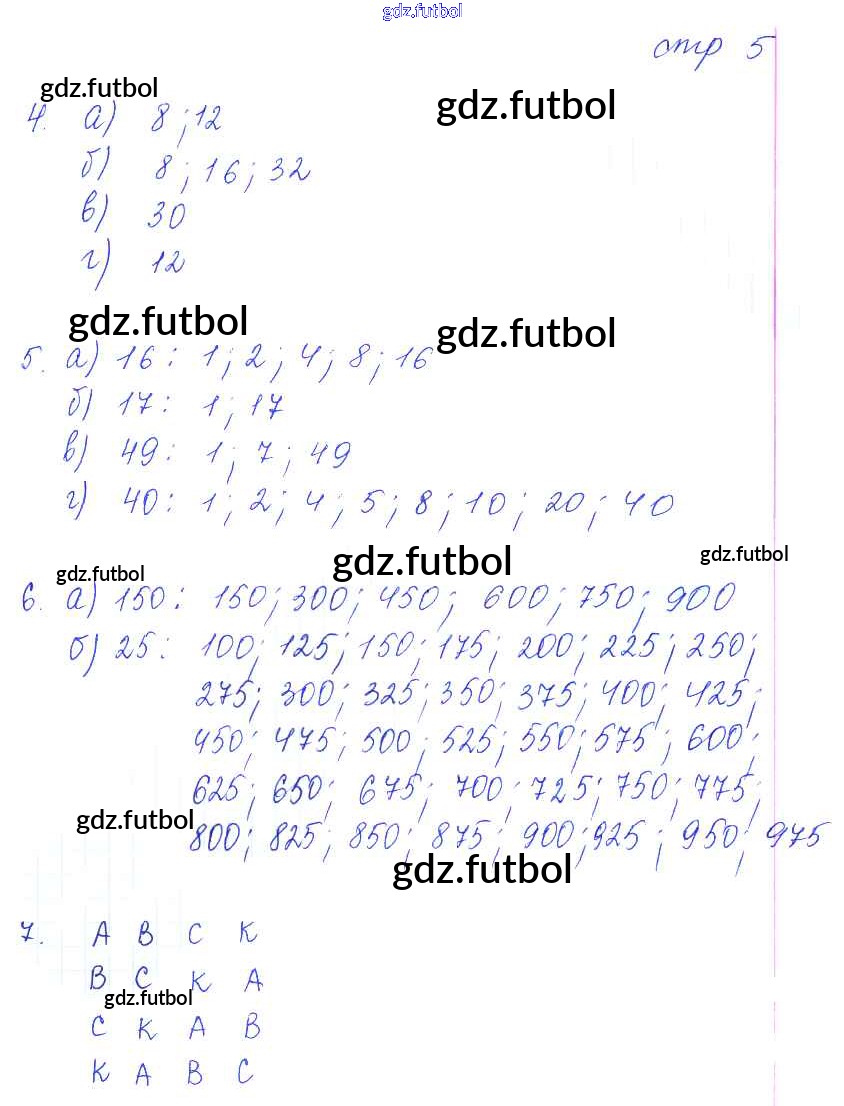 gdz.futbol
стр 5
gdz.futbol
gdz.futbol
4. а) 8; 12
б) 8; 16; 32
в) 30
г) 12
gdz.futbol
gdz.futbol
5. а) 16: 1; 2; 4; 8; 16
б) 17: 1; 17
в) 49: 1; 7; 49
г) 40: 1; 2; 4; 5; 8; 10; 20; 40
gdz.futbol
gdz.futbol
gdz.futbol
6. а) 150: 150; 300; 450; 600; 750; 900
б) 25: 100; 125; 150; 175; 200; 225; 250;
275; 300; 325; 350; 375; 400; 425;
450; 475; 500; 525; 550; 575; 600;
625; 650; 675; 700; 725; 750; 775;
gdz.futbol
800; 825; 850; 875; 900; 925; 950; 975
gdz.futbol
7. A B C K
B C K A
gdz.futbol
C K A B
K A B C